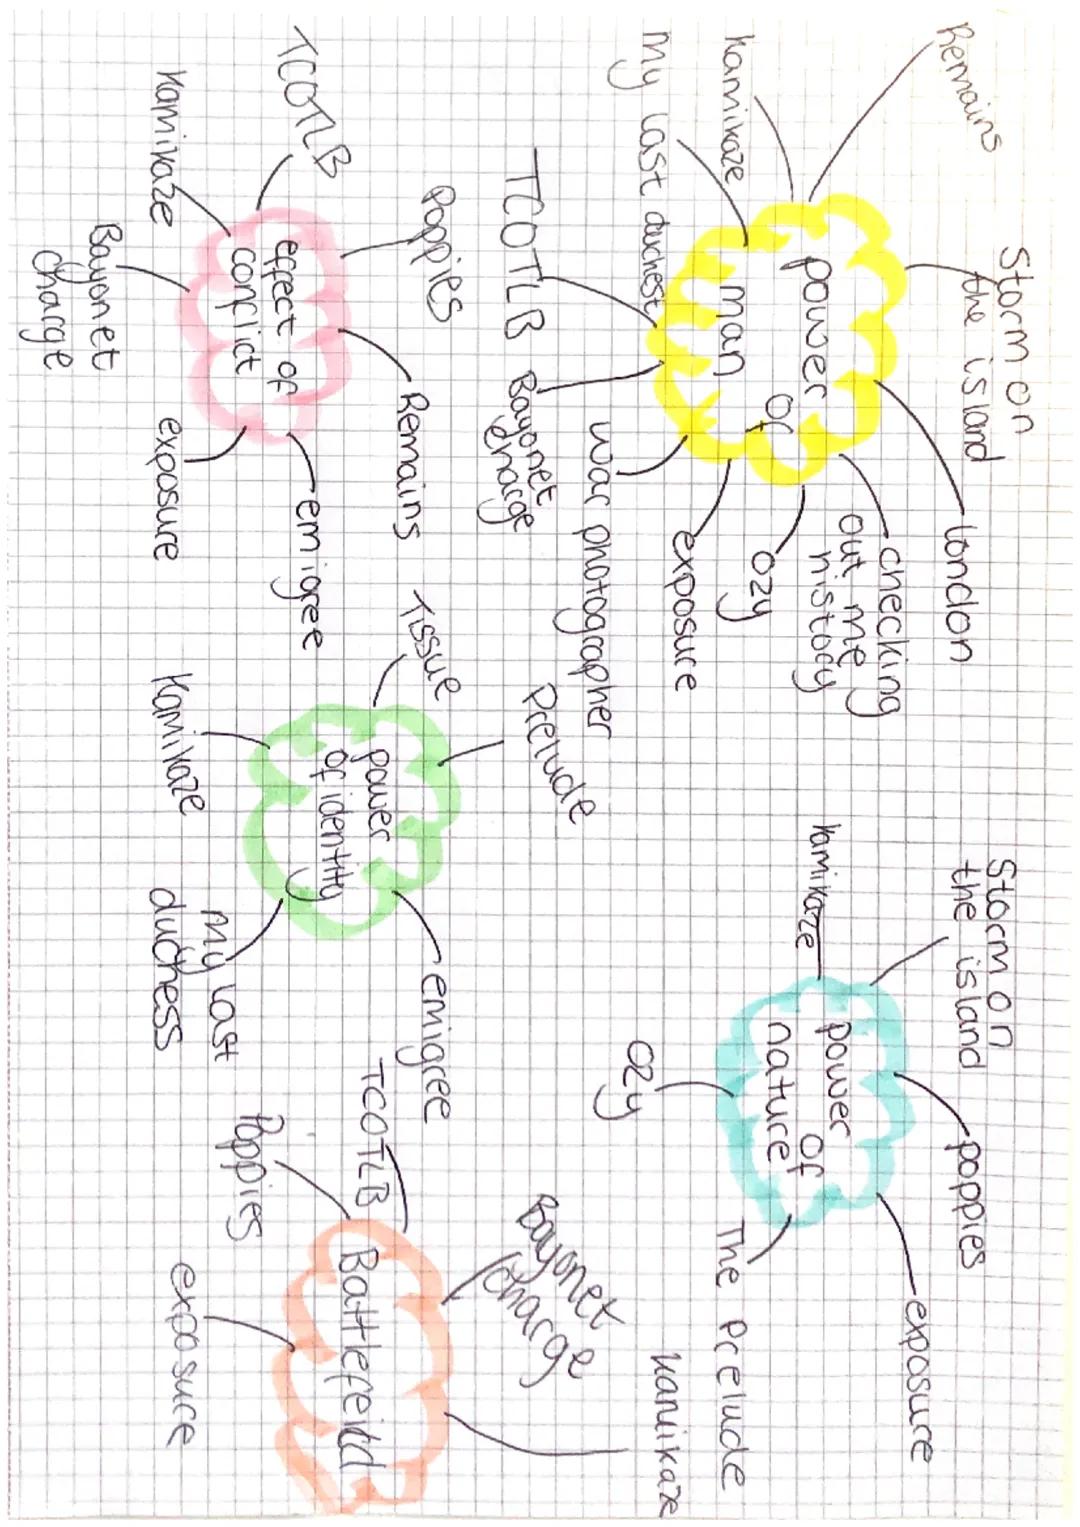 Remains
Kamikaze
My last duchest
TCOTLB
Bayonet
charge
war photographer
exposure
ozy
checking
out me
history
london
Storm on
the island
power
of
man
Storm on
the island
Kamikaze
poppies
exposure
The prelude
ozy
power
of
nature
TCOTLB
Poppies
Remains
emigree
exposure
Bayonet
charge
Kamikaze
effect of
conflict
Tissue
Prelude
emigree
My last
duchess
Kamikaze
power
of identity
TCOTLB
Poppies
exposure
Bayonet
charge
Kamikaze
Battlefeild